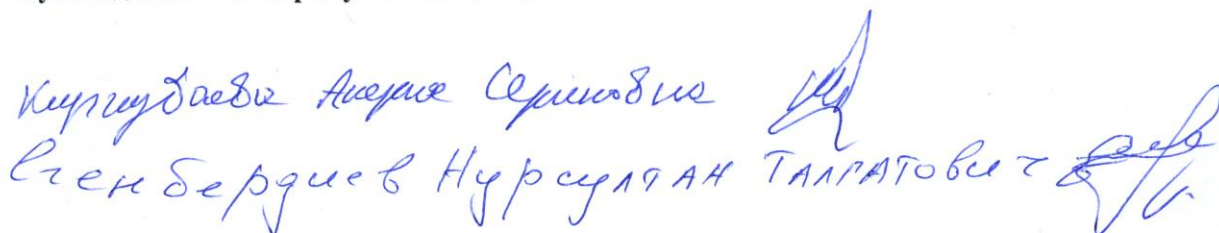 Киргизбаева Акерке Сериковна
Егенбердиев Нурсултан Талгатович